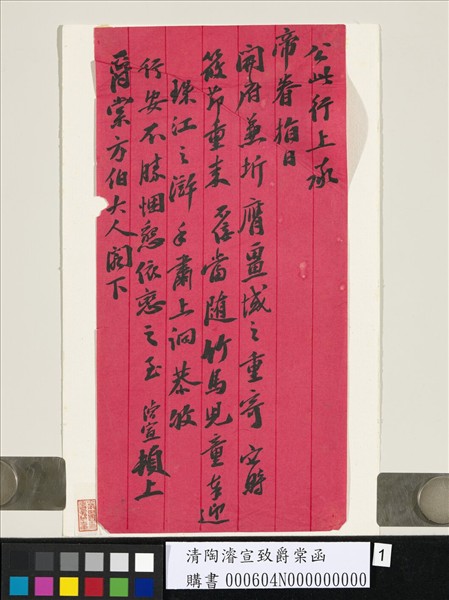 公此行上承
帝眷指日
開府兼圻膺畺城之重寄 安時
筱節重來 當随竹馬兒童奉迎
珠江之滸手肅上泐恭敂
行安不勝悃愨依戀之至 濬宣頓上
爵棠方伯大人閣下
清陶濬宣致爵棠函
購書 000604N000000000
1